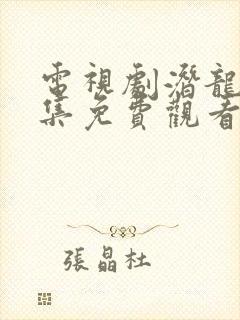 電視劇潛龍
集免費觀看
張晶杜